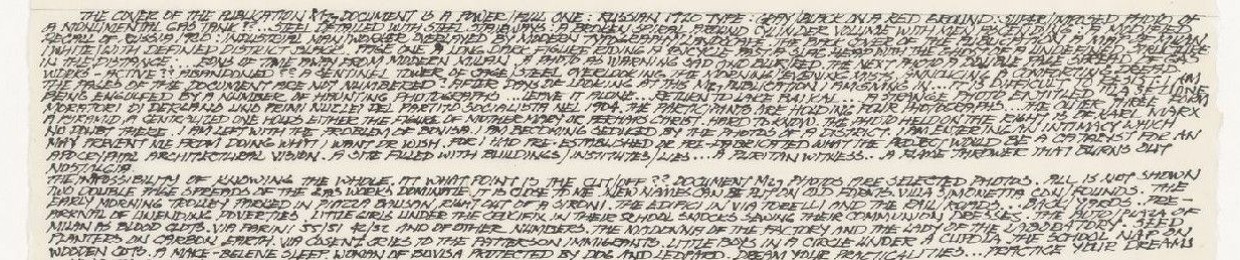 THE COVER OF THE PUBLICATION M17 DOCUMENT IS A POWER/FULL ONE : RUSSIAN 1920 TYPE : GRAY/BLACK ON A RED GROUND. SUPER/IMPOSED PHOTO OF
A MONUMENTAL GAS TANK STEEL STAIRWAYS. A BROKEN SPIRAL AROUND CYLINDER VOLUME WITH MEN ASCENDING. A MODIFIED
RECALL OF RUSSIA/1920. INDUSTRIAL MAN/WORKER OVER MODERN THE PUBLICATION A MAP OF MILAN
/WHITE/WITH DEFINED DISTRICT BLACK. PAGE ONE A LONG DARK FIGURE RIDING A BICYCLE PAST A UNDEFINED STRUCTURE
IN THE DISTANCE... EONS OF TIME AWAY FROM MODERN MILAN. A PHOTO AS WARNING SAD AND BLURRED. THE NEXT PHOTO A DOUBLE PAGE SPREAD OF GAS
WORKS - ACTIVE?? ABANDONED?? A SENTINEL TOWER OF CAGE/STEEL OVERLOOKING THE MORNING/EVENING MISTS, ANNOUNCING A COMFORTING
THE PAGES OF THE DOCUMENT ARE NOT NUMBERED. AFTER DAYS OF LOOKING AT THIS M17 PUBLICATION I AM GIVING IN... IT IS DIFFICULT TO RESIST. I AM
BEING ENGULFED BY A NUMBER OF HAUNTING PHOTOGRAPHS... LEAVE IT ALONE... RETURN TO LAKE A STRANGE PHOTO ENTITLED
NEL 1904. THE PARTICIPANTS ARE HOLDING FOUR PHOTOGRAPHS... THE OUTER THREE FORM
A PYRAMID, A CENTRALIZED ONE HOLDS EITHER THE FIGURE OF MOTHER MARY OR PERHAPS CHRIST. HARD TO KNOW. THE PHOTO HELD ON THE RIGHT IS OF KARL MARX
NO DOUBT THERE. I AM LEFT WITH THE PROBLEM OF BOVISA. I AM BECOMING SEDUCED BY THE PHOTOS OF A DISTRICT. I AM ENTERING AN INTIMACY WHICH
MAY PREVENT ME FROM DOING WHAT I WANT OR WISH. FOR I HAD PRE-ESTABLISHED OR PRE-FABRICATED WHAT THE PROJECT WOULD BE A CATHARSIS FOR AN
ARCHITECTURAL VISION. A SITE FILLED WITH BUILDINGS/INSTITUTES/LIES... A PURITAN WITNESS... A FLAME THROWER THAT BURNS OUT
NOSTALGIA
THE IMPOSSIBILITY OF KNOWING THE WHOLE. AT WHAT POINT IS THE CUT/OFF?? DOCUMENT M17 PHOTOS ARE SELECTED PHOTOS. ALL IS NOT SHOWN
TWO DOUBLE PAGE SPREADS OF THE GAS WORKS DOMINATE. IT IS CLOSE TO ME. NEW NAMES CAN BE PUT ON OLD FORMS. VILLA SIMONETTA CON/FOUNDS. THE
EARLY MORNING TROLLEY PARKED IN PIAZZA BAUSAN, RIGHT OUT OF A SIRONI. THE EDIFICI IN VIA TORELLI AND THE RAIL/ROADS... BACK/YARDS.. PRE-
ARRIVAL OF UNENDING POVERTIES. LITTLE GIRLS UNDER THE CRUCIFIX IN THEIR SCHOOL SMOCKS SEWING THEIR COMMUNION DRESSES. THE AUTO/PLAZA OF
MILAN AS BLOOD CLOTS. VIA 55/51 42/32 AND OF OTHER NUMBERS. THE MADONNA OF THE FACTORY AND THE LADY OF THE LABORATORY. SEED
PLANTERS ON CARBON EARTH. VIA COSENZ CRIES TO THE PATTERSON IMMIGRANTS. LITTLE BOYS IN A CIRCLE UNDER A CUPOLA, THE SCHOOL NAP ON
WOODEN COTS. A MAKE-BELIEVE SLEEP. WOMAN OF BOVISA PROTECTED BY DOG AND LEOPARD. DREAM YOUR PRACTICALITIES... PRACTICE YOUR DREAMS